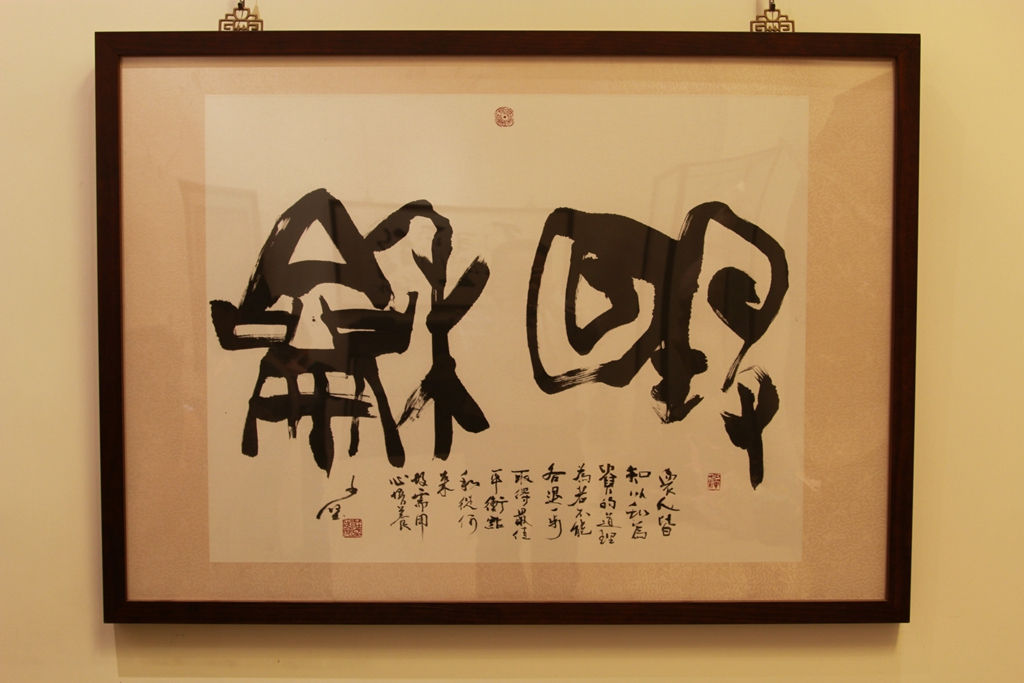 龢
人皆
知以和為
貴的道理
若不能
各退一步
取得最佳
平衡點
和從何
來
需用
心培養